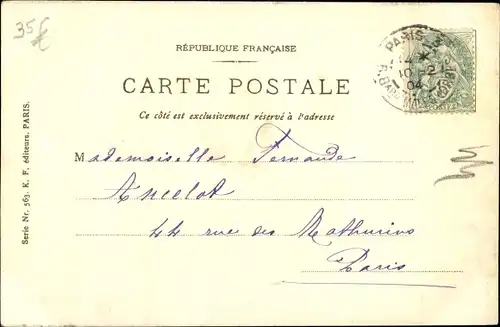 35€
RÉPUBLIQUE FRANÇAISE
CARTE POSTALE
Ce côté est exclusivement réservé à l'adresse
PARIS
10 - 2
04
Mademoiselle Fernande
Ancelot
44 rue des Mathurins
Paris
Serie Nr. 563. K. F. éditeurs, PARIS.